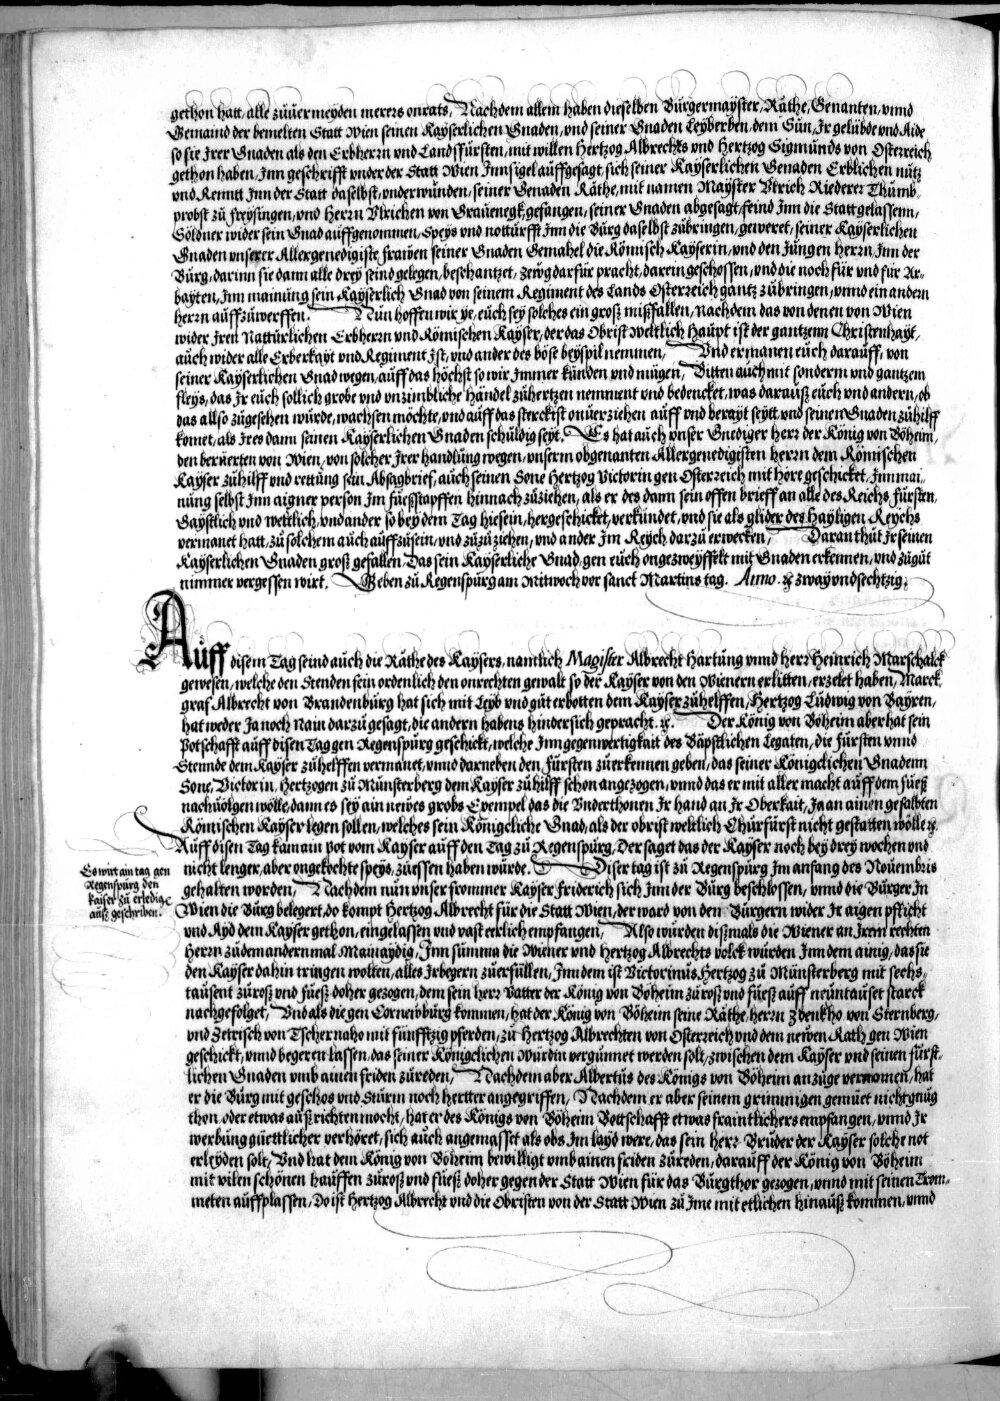 gethon hatt, alle züüermeyden merers onrats, Nachdem allem haben dieselben Bürgermayster, Räthe, Genanten, vnnd
Gemaind der bemelten Statt Wien seinen Kayserlichen Gnaden, vnd seiner Gnaden Leyberben, dem Sün, Jr gelübde vnd Aide
so sie Jrer Gnaden als den Erbherrn vnd Landsfürsten, mit willen Hertzog Albrechts vnd Hertzog Sigmünds von Osterreich
gethon haben, Jnn geschrifft vnder der Statt Wien Jnnsigel auffgesagt, sich seiner Kayserlichen Genaden Erblichen nütz
vnd Renntt Jnn der Statt daselbst, vnderwünden, seiner Genaden Räthe, mit namen Mayster Vlrich Riederer Thümb-
probst zü freysingen, vnd Herrn Vlrichen von Grauenegk, gefangen, seiner Gnaden abgesagt, feind Jnn die Statt gelassenn,
Söldner wider sein Gnad auffgenommen, Speys vnd notturfft Jnn die Bürg daselbst zübringen, geweret, seiner Kayserlichen
Gnaden vnserer Allergenedigiste frawen seiner Gnaden Gemahel die Römisch Kayserin, vnd den Jüngen herrn, Jnn der
Bürg, darinn sie dann alle drey seind gelegen, beschantzet, Zewg darfür pracht, darein geschossen, vnd die noch für vnd für Ar-
bayten, Jnn mainüng sein Kayserlich Gnad von seinem Regiment des Lands Osterreich gantz zübringen, vnnd ein andern
herrn auffzüwerffen. Nün hoffen wir ye, euch sey solches ein groß mißfallen, nachdem das von denen von Wien
wider Jren Nattürlichen Erbherrn vnd Römischen Kayser, der das Obrist weltlich Haüpt ist der gantzenn Christenhayt,
auch wider alle Erberkayt vnd Regiment Jst, vnd ander des böse beyspil nemmen, Vnd ermanen euch darauff, von
seiner Kayserlichen Gnad wegen, auff das höchst so wir Jmmer künden vnd mügen, Bitten auch mit sonderm vnd gantzem
fleys, das Jr euch sollich grobe vnd vnzimbliche händel zühertzen nemment vnd bedencket, was darauß euch vnd andern, ob
das allso zügesehen würde, wachsen möchte, vnd auff das sterckist onüerziehen auff vnd berayt seytt, vnd seinen Gnaden zühilff
komet, als Jr es dann seinen Kayserlichen Gnaden schüldig seyt. Es hat auch vnser Gnediger herr der König von Böheim,
den berüerten von Wien, von solcher Jrer handlüng wegen, vnserm obgenanten Allergenedigisten herrn dem Römischen
Kayser zühilff vnd rettüng sein Absagbrief, auch seinen Sone Hertzog Victorin gen Osterreich mit höre geschicket, Jnn mai-
nüng selbst Jnn aigner person Jm füeßstapffen hinnach züziehen, als er des dann sein offen brieff an alle des Reichs fürsten,
Gaystlich vnd weltlich, vnd ander so bey dem Tag hie sein, hergeschicket, verkündet, vnd sie als glider des Hayligen Reychs
vermanet hatt, zü solchem auch auff zü sein, vnd zü züziehen, vnd ander Jm Reych darzü erwecken, Daran thüt Jr seinen
Kayserlichen Gnaden groß gefallen, Das sein Kayserliche Gnad, gen euch ongezweyffelt mit Gnaden erkennen, vnd zügüt
nimmer vergessen wirt. Geben zü Regenspürg am Mitwoch vor sanct Martins tag. Anno. &c zway vnd sechtzig.
Auff disem Tag seind auch die Räthe des Kaysers, namlich Magister Albrecht Hartüng vnnd herr Heinrich Marschalck
gewesen, welche den Stenden sein ordenlich den onrechten gewalt so der Kayser von den Wienern erlitten, erzelet haben, Marck
graf Albrecht von Brandenbürg hat sich mit Leyb vnd güt erbotten dem Kayser zühelffen, Hertzog Lüdwig von Bayren,
hat weder Ja noch Nain darzü gesagt, die andern habens hindersich gepracht. &c. Der König von Böheim aber hat sein
Potschafft auff disen Tag gen Regenspürg geschickt, welche Jnn gegenwertigkait des Bäpstlichen Legaten, die fürsten vnnd
Stennde dem Kayser zühelffen vermanet, vnnd darneben den fürsten züerkennen geben, das seiner Königclichen Gnadenn
Sone, Victorin, Hertzogen zü Münsterberg dem Kayser zühilff schon angezogen, vnnd das er mit aller macht auff dem füeß
nachuolgen wölle, dann es sey ain newes grobs Exempel das die Vnderthonen Jr hand an Jr Oberkait, Ja an ainen gesalbten
Römischen Kayser legen sollen, welches sein Königcliche Gnad, als der obrist weltlich Chürfürst nicht gestatten wölle &c.
Auff disen Tag kam ain Pot vom Kayser auff den Tag zü Regenspürg, Der saget das der Kayser noch bey drey wochen vnd
nicht lenger, aber ongekochte speys, züessen haben würde. Diser tag ist zü Regenspürg Jm anfang des Nouembris
gehalten worden, Nachdem nün vnser frommer Kayser friderich sich Jnn der Bürg beschlossen, vnnd die Bürger Jn
Wien die Bürg belegert, do kompt Hertzog Albrecht für die Statt Wien, der ward von den Bürgern wider Jr aigen pflicht
vnd Ayd dem Kayser gethon, eingelassen vnd vast erlich empfangen, Also würden dißmals die Wiener an Jrem rechten
Herrn zü dem andern mal Mainaydig, Jnn sümma die Wiener vnd Hertzog Albrechts volck würden Jnn dem ainig, das sie
den Kayser dahin tringen wolten, alles Jr begern züerfüllen, Jnn dem ist Victorinüs Hertzog zü Münsterberg mit sechs-
tausent züroß vnd füeß doher gezogen, dem sein herr Vatter der König von Böheim züroß vnd füeß auff neüntauset starck
nachgefolget, Vnd als die gen Cornewbürg kommen, hat der König von Böheim seine Räthe, herrn Zdenkho von Sternberg,
vnd Zetrisch von Tschernaho mit fünfftzig pferden, zü Hertzog Albrechten von Osterreich vnd dem newen Rath gen Wien
geschickt, vnnd begeren lassen, das seiner Königclichen Würdin vergünnet werden solt, zwischen dem Kayser vnd seinen fürst-
lichen Gnaden vmb ainen friden züreden, Nachdem aber Albertüs des Königs von Böheim anzüge vernomen, hat
er die Bürg mit geschos vnd Stürm noch hertter angegriffen, Nachdem er aber seinem grimmigen gemüet nicht gnüg
thon, oder etwas außrichten mocht, hat er des Königs von Böheim Bottschafft etwas fraintlichers empfangen, vnnd Jr
werbüng güettlicher verhöret, sich auch angemasset als obs Jm layd were, das sein herr Brüder der Kayser solche not
erleyden solt, Vnd hat dem König von Böheim bewilligt vmb ainen friden züreden, darauff der König von Böheim
mit vilen schönen hauffen züroß vnd füeß doher gegen der Statt Wien für das Bürgthor gezogen, vnnd mit seinen Trom-
meten auffplassen, Do ist Hertzog Albrecht vnd die Obristen von der Statt Wien zü Jme mit etlichen hinauß kommen, vnnd
Es wirt ain tag gen
Regenspürg den
Kaiser zü erledigē
auß geschriben.